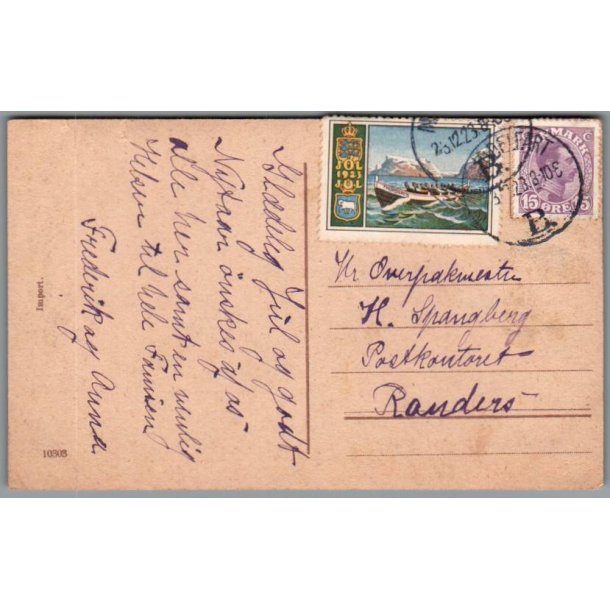 Glædelig Jul og godt
Nytaar ønskes af os
alle her samt en venlig
Hilsen til hele Familien
Frederik og Anna
Import.
10303
JÓL
1923
JUL
23.12.23.8
DANMARK
15 ØRE 15
B.
Hr Overpakmester
H. Spangberg
Postkontoret
Randers